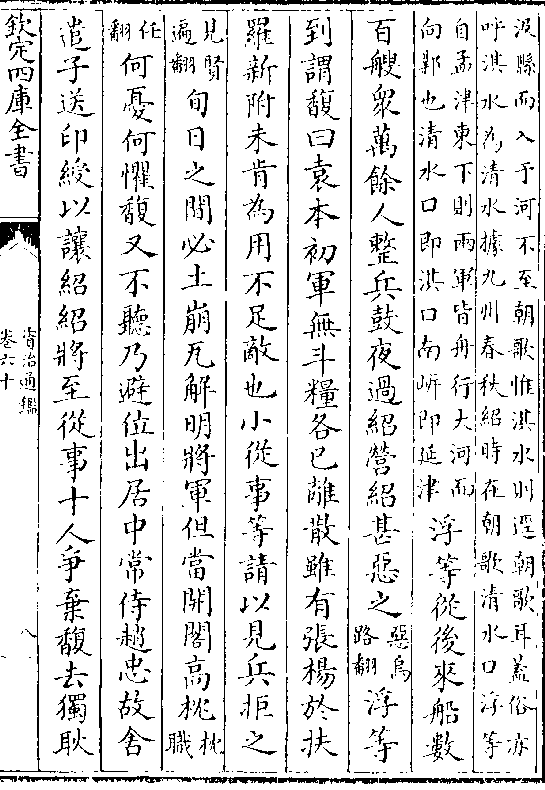 汲縣而入于河不至朝歌惟淇水則逕朝歌耳蓋俗亦
呼淇水為清水據九州春秋紹時在朝歌清水口浮等
自孟津東下則兩軍皆舟行大河而
向鄴也清水口即淇口南岍即延津
浮等從後來船數
百艘衆萬餘人整兵鼓夜過紹營紹甚惡之惡烏路翻浮等
到謂馥曰袁本初軍無斗糧各已離散雖有張楊於扶
羅新附未肯為用不足敵也小從事等請以見兵拒之
見賢遍翻旬日之間必土崩瓦解明將軍但當開閤高枕枕職
任翻何憂何懼馥又不聽乃避位出居中常侍趙忠故舍
遣子送印綬以讓紹紹將至從事十人爭棄馥去獨耿
欽定四庫全書
資治通鑑
卷六十
八